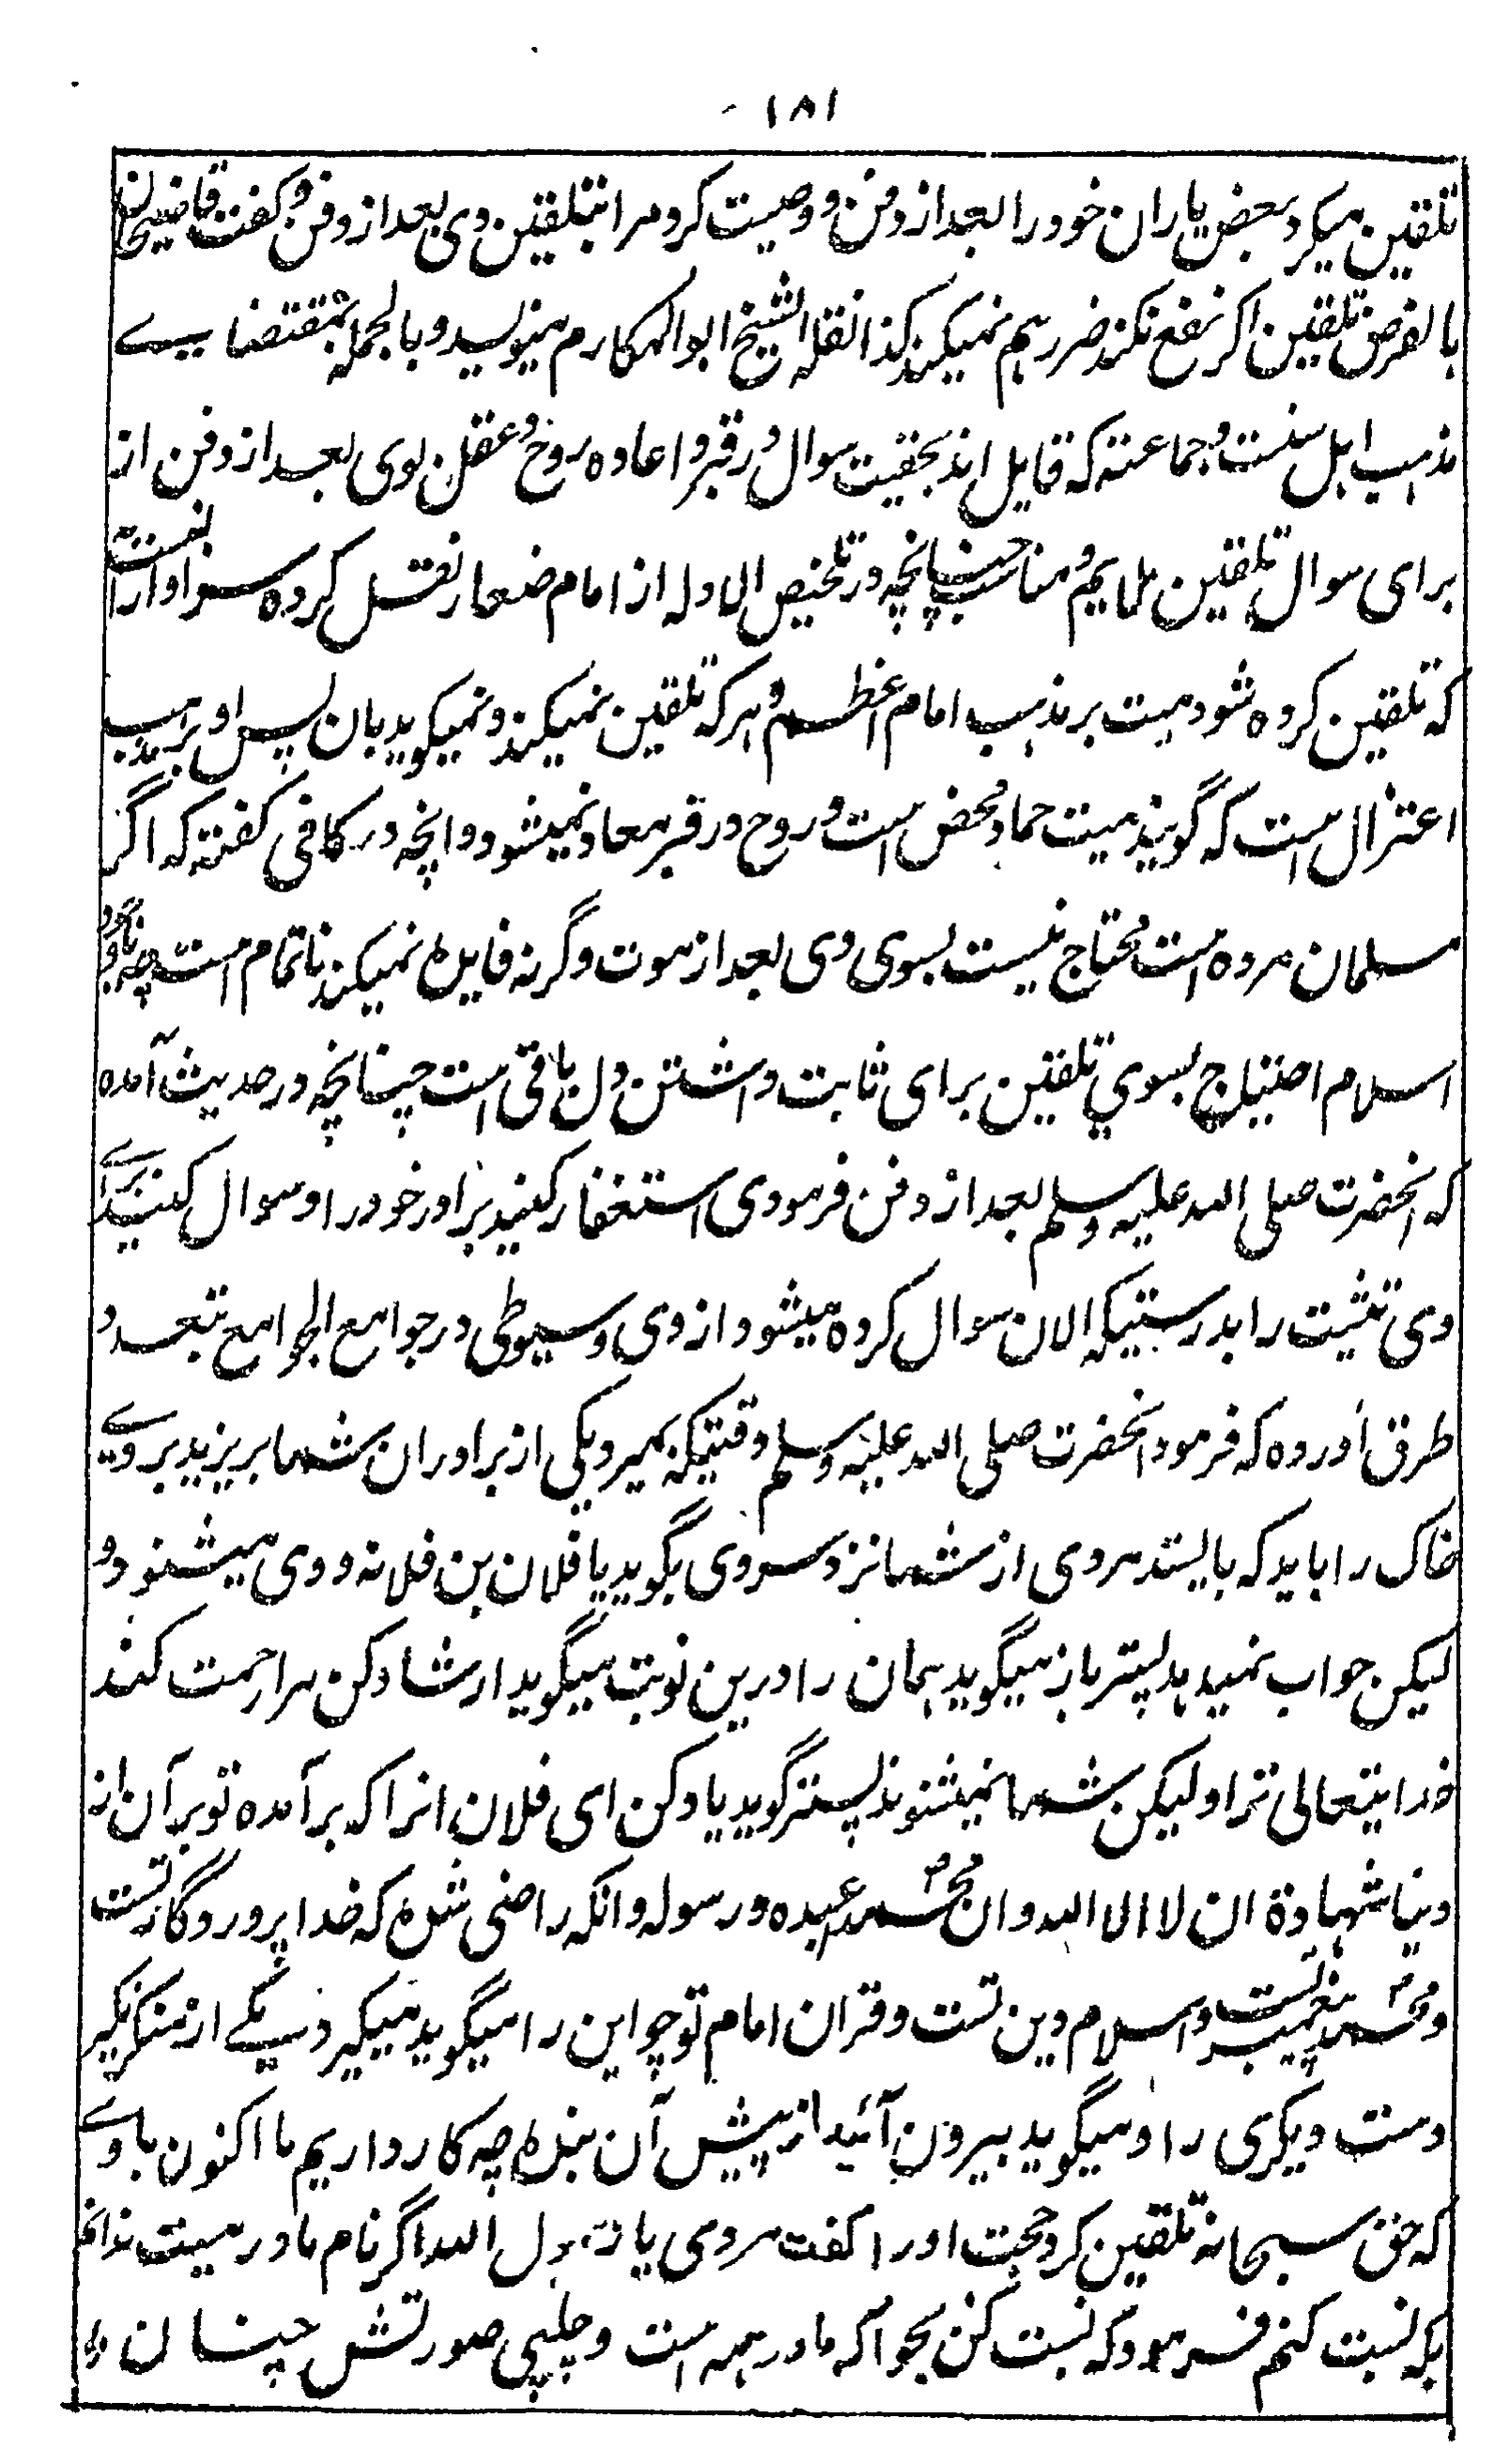 ۱۸۱
تلقین میکرد بعض یاران خود را بعد از دفن و وصیت کرد مرا بتلقین وی بعد از دفن و گفت قاضیخان
بالفرض تلقین اگر نفع نکند ضرر هم نمیکند کذا نقله الشیخ ابو المکارم مینویسد و بالجمله بمقتضایے
مذهب اهل سنت و جماعته که قایل اند بحقیت سوال در قبر و اعاده روح و عقل بوی بعد از دفن از
برای سوال تلقین ملایم و مناسب چنانچه در تلخیص الادله از امام صفار نقل کرده سزاوار آنست
که تلقین کرده شود میت بر مذهب امام اعظم و هر که تلقین نمیکند و نمیگوید بان پس او بر مذهب
اعتزال است که گویند میت جماد محض است و روح در قبر معاد نمیشود و انچه در کافی گفته که اگر
مسلمان مرده است محتاج نیست بسوی وی بعد از موت و گرنه فایده نمیکند ناتمام است چه باوجود
اسلام احتیاج بسوي تلقین برای ثابت داشتن دل باقی است چنانچه در حدیث آمده
که انحضرت صلی الله علیه وسلم بعد از دفن فرمودی استغفار کنید برادر خود را و سوال کنید برائے
وی تثبت را بدرستیکه الان سوال کرده میشود از وی و سیوطی در جوامع الجوامع بتعدد
طرق آورده که فرمود انحضرت صلی الله علیه وسلم وقتیکه بمیرد یکی از برادران شما بریزید بر وے
خاک را باید که بایستد مردی از شما نزد سر وی بگوید یا فلان بن فلانه و وی میشنود و
لیکن جواب نمیدهد پستر باز میگوید همان را درین نوبت میگوید ارشاد کن مرا رحمت کند
خدایتعالی ترا و لیکن شما نمیشنوند پستر گوید یاد کن ای فلان انرا که برآمده تو بر آن از
دنیا شهادة ان لا الا الله و ان محمد عبده و رسوله و انکه راضی شده که خدا پروردگار تست
و محمد پیغمبر تست و اسلام دین تست و قران امام تو چو این را میگوید میگیرد یکے از منکر نکیر
دست دیگری را و میگوید بیرون آئید از پیش آن بنده چه کار داریم ما اکنون با وے
که حق سبحانه تلقین کرد حجت او را گفت مردمی یا رسول الله اگر نام مادر میت ندانم
بکه نسبت کنم فرمود که نسبت کن بحوا که مادر همه است و چلپی صورتش چنان